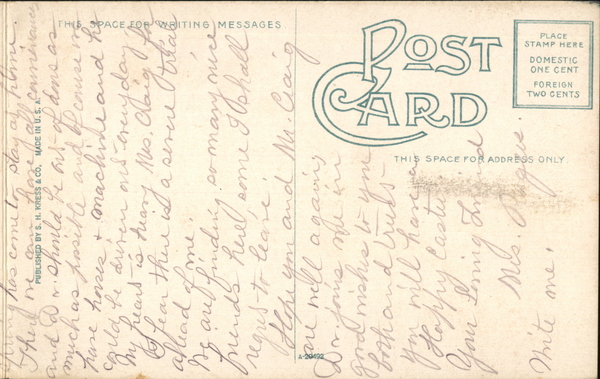 THIS SPACE FOR WRITING MESSAGES
POST
CARD
PLACE
STAMP HERE
DOMESTIC
ONE CENT
FOREIGN
TWO CENTS
THIS SPACE FOR ADDRESS ONLY
PUBLISHED BY S. H. KRESS & CO. MADE IN U. S. A.
A-29492
has come to stay at home.
There we can have all
and Dr. should be out of doors as
much as possible and because we
have horses & machine and he
could be driven out every day
My heart is heavy Mrs. Craig for
I fear there is a severe trial
ahead for me.
By are finding so many nice
friends here some I shall
regret to leave.
Hope you and Mr. Craig
are well again,
Dr. joins me in
good wishes to you
both and trust
you will have a
Happy Easter
Your loving friend
Mrs.
Write me.